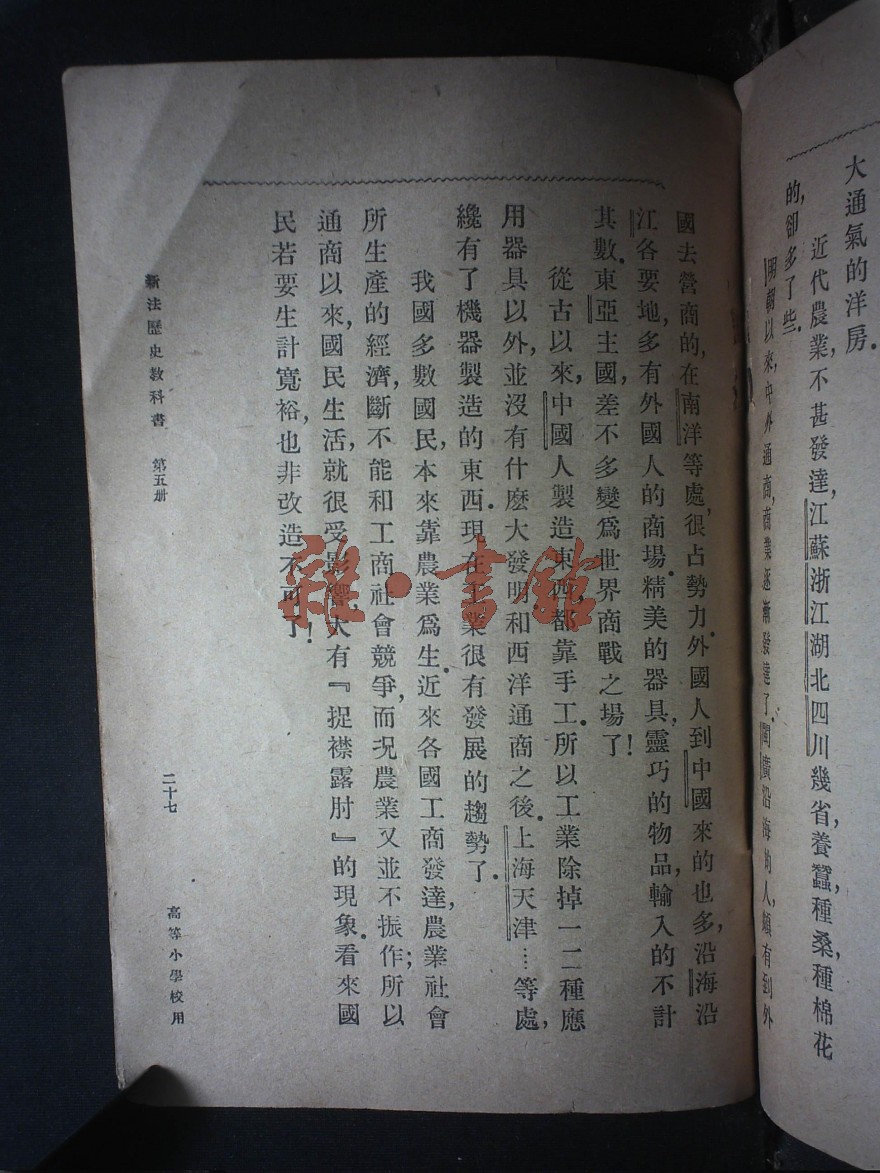 大通氣的洋房．
近代農業，不甚發達，江蘇浙江湖北四川幾省，養蠶，種桑，種棉花
的，卻多了些．
明朝以來，中外通商，商業逐漸發達了．閩廣沿海的人，頗有到外
國去營商的，在南洋等處，很占勢力．外國人到中國來的也多，沿海沿
江各要地，多有外國人的商場．精美的器具，靈巧的物品，輸入的不計
其數．東亞主國，差不多變爲世界商戰之場了！
從古以來，中國人製造東西，都靠手工．所以工業除掉一二種應
用器具以外，並沒有什麽大發明．和西洋通商之後，上海天津…等處，
纔有了機器製造的東西．現在工業很有發展的趨勢了．
我國多數國民，本來靠農業爲生．近來各國工商發達，農業社會
所生產的經濟，斷不能和工商社會競爭，而况農業又並不振作；所以
通商以來，國民生活，就很受影響，大有『捉襟露肘』的現象．看來國
民若要生計寬裕，也非改造不可了！
新法歷史教科書　第五册　二十七　高等小學校用
雜·書館